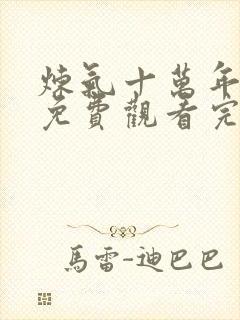 煉氣十萬年
免費觀看完
馬雷-迪巴巴